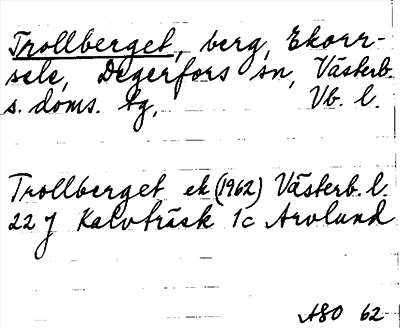 Trollberget, berg, Ekorr-
sele, Degerfors sn, Västerb.
s. doms. tg, Vb. l.
Trollberget ek (1962) Västerb. l.
22 J Kalvträsk 1c Arvlund
ASO 62